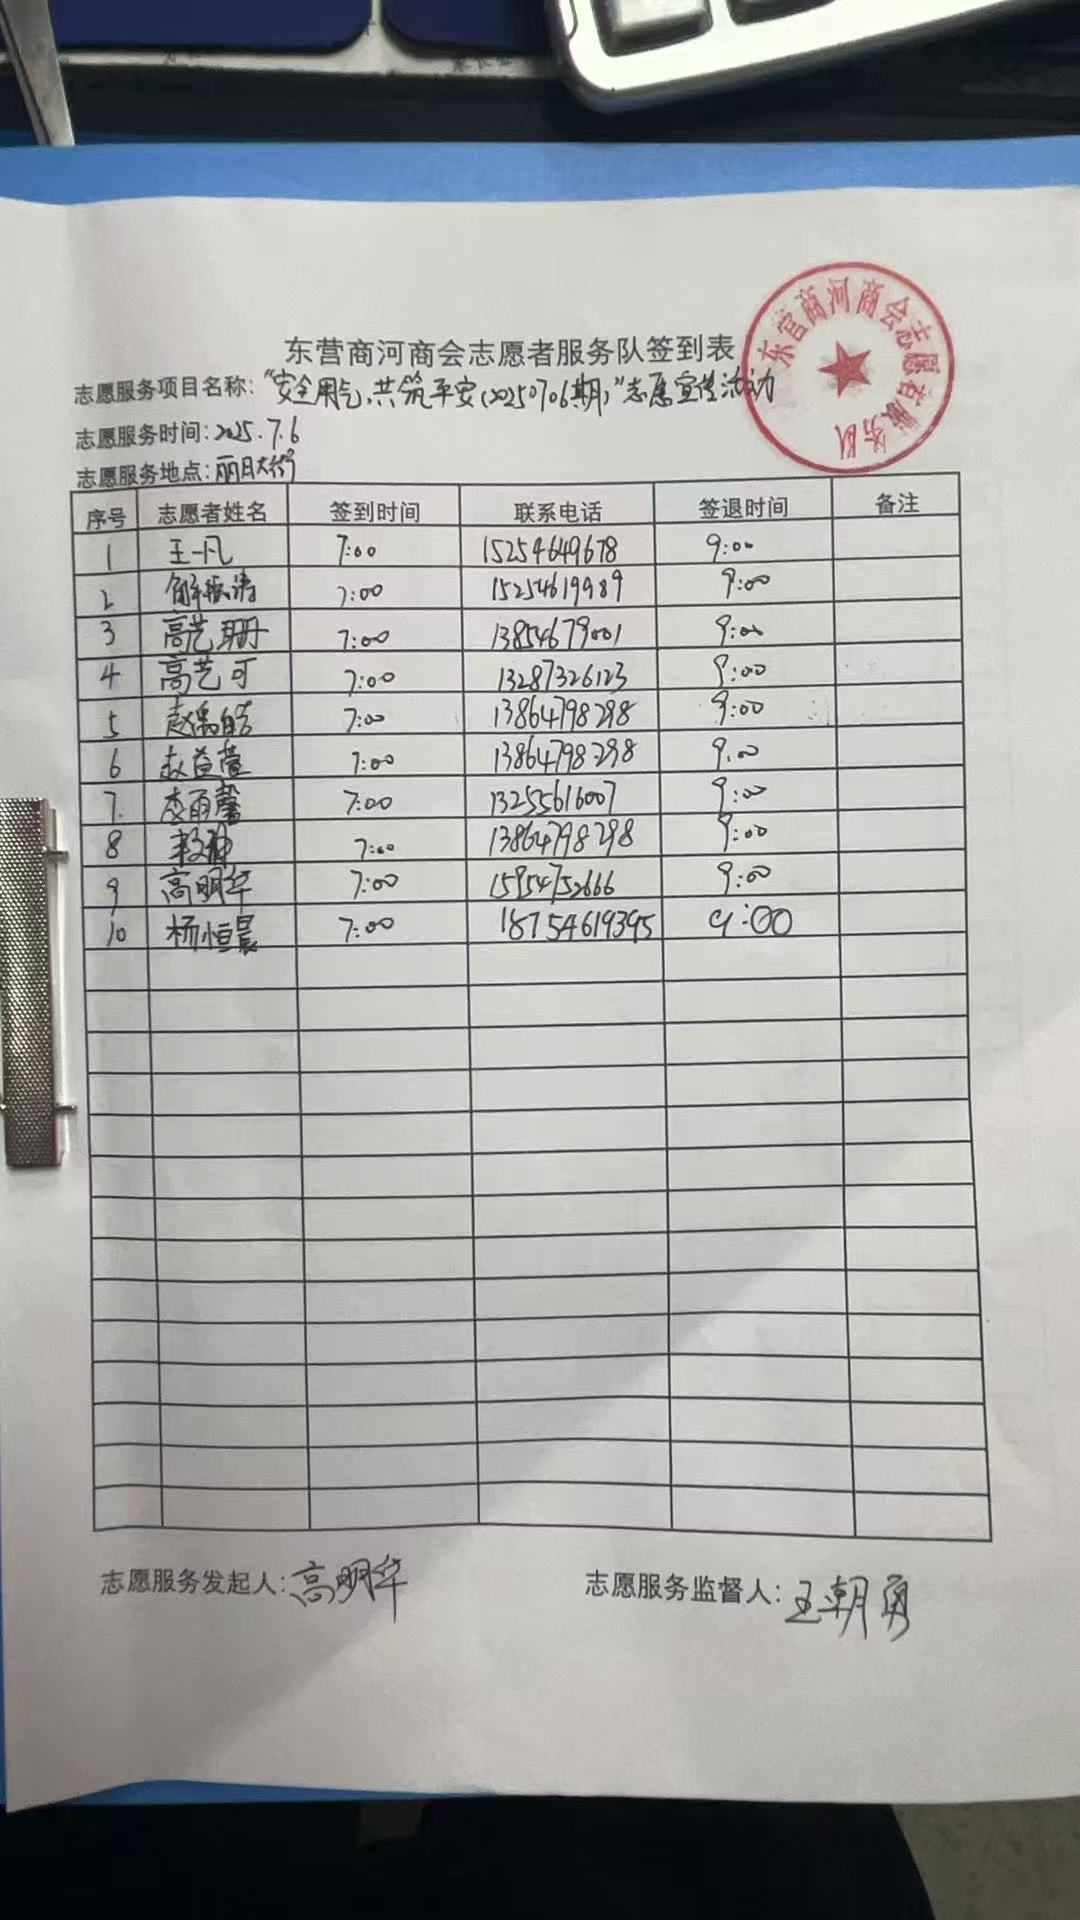 东营商河商会志愿者服务队签到表
东营商河商会志愿者服务队
志愿服务项目名称:"安全用气,共筑平安(20250706期)"志愿宣传活动
志愿服务时间:2025.7.6
志愿服务地点:丽日大街
序号 志愿者姓名 签到时间 联系电话 签退时间 备注
1 王一凡 7:00 15254649678 9:00
2 7:00 15254619989 9:00
3 高艺玥 7:00 13854679001 9:00
4 高艺可 7:00 13287326123 9:00
5 赵禹皓 7:00 13864798298 9:00
6 赵益萱 7:00 13864798298 9:00
7 李雨馨 7:00 13255616007 9:00
8 7:00 13864798298 9:00
9 高明华 7:00 15954752666 9:00
10 杨恒晨 7:00 18754619395 9:00
志愿服务发起人:高明华 志愿服务监督人:王朝勇